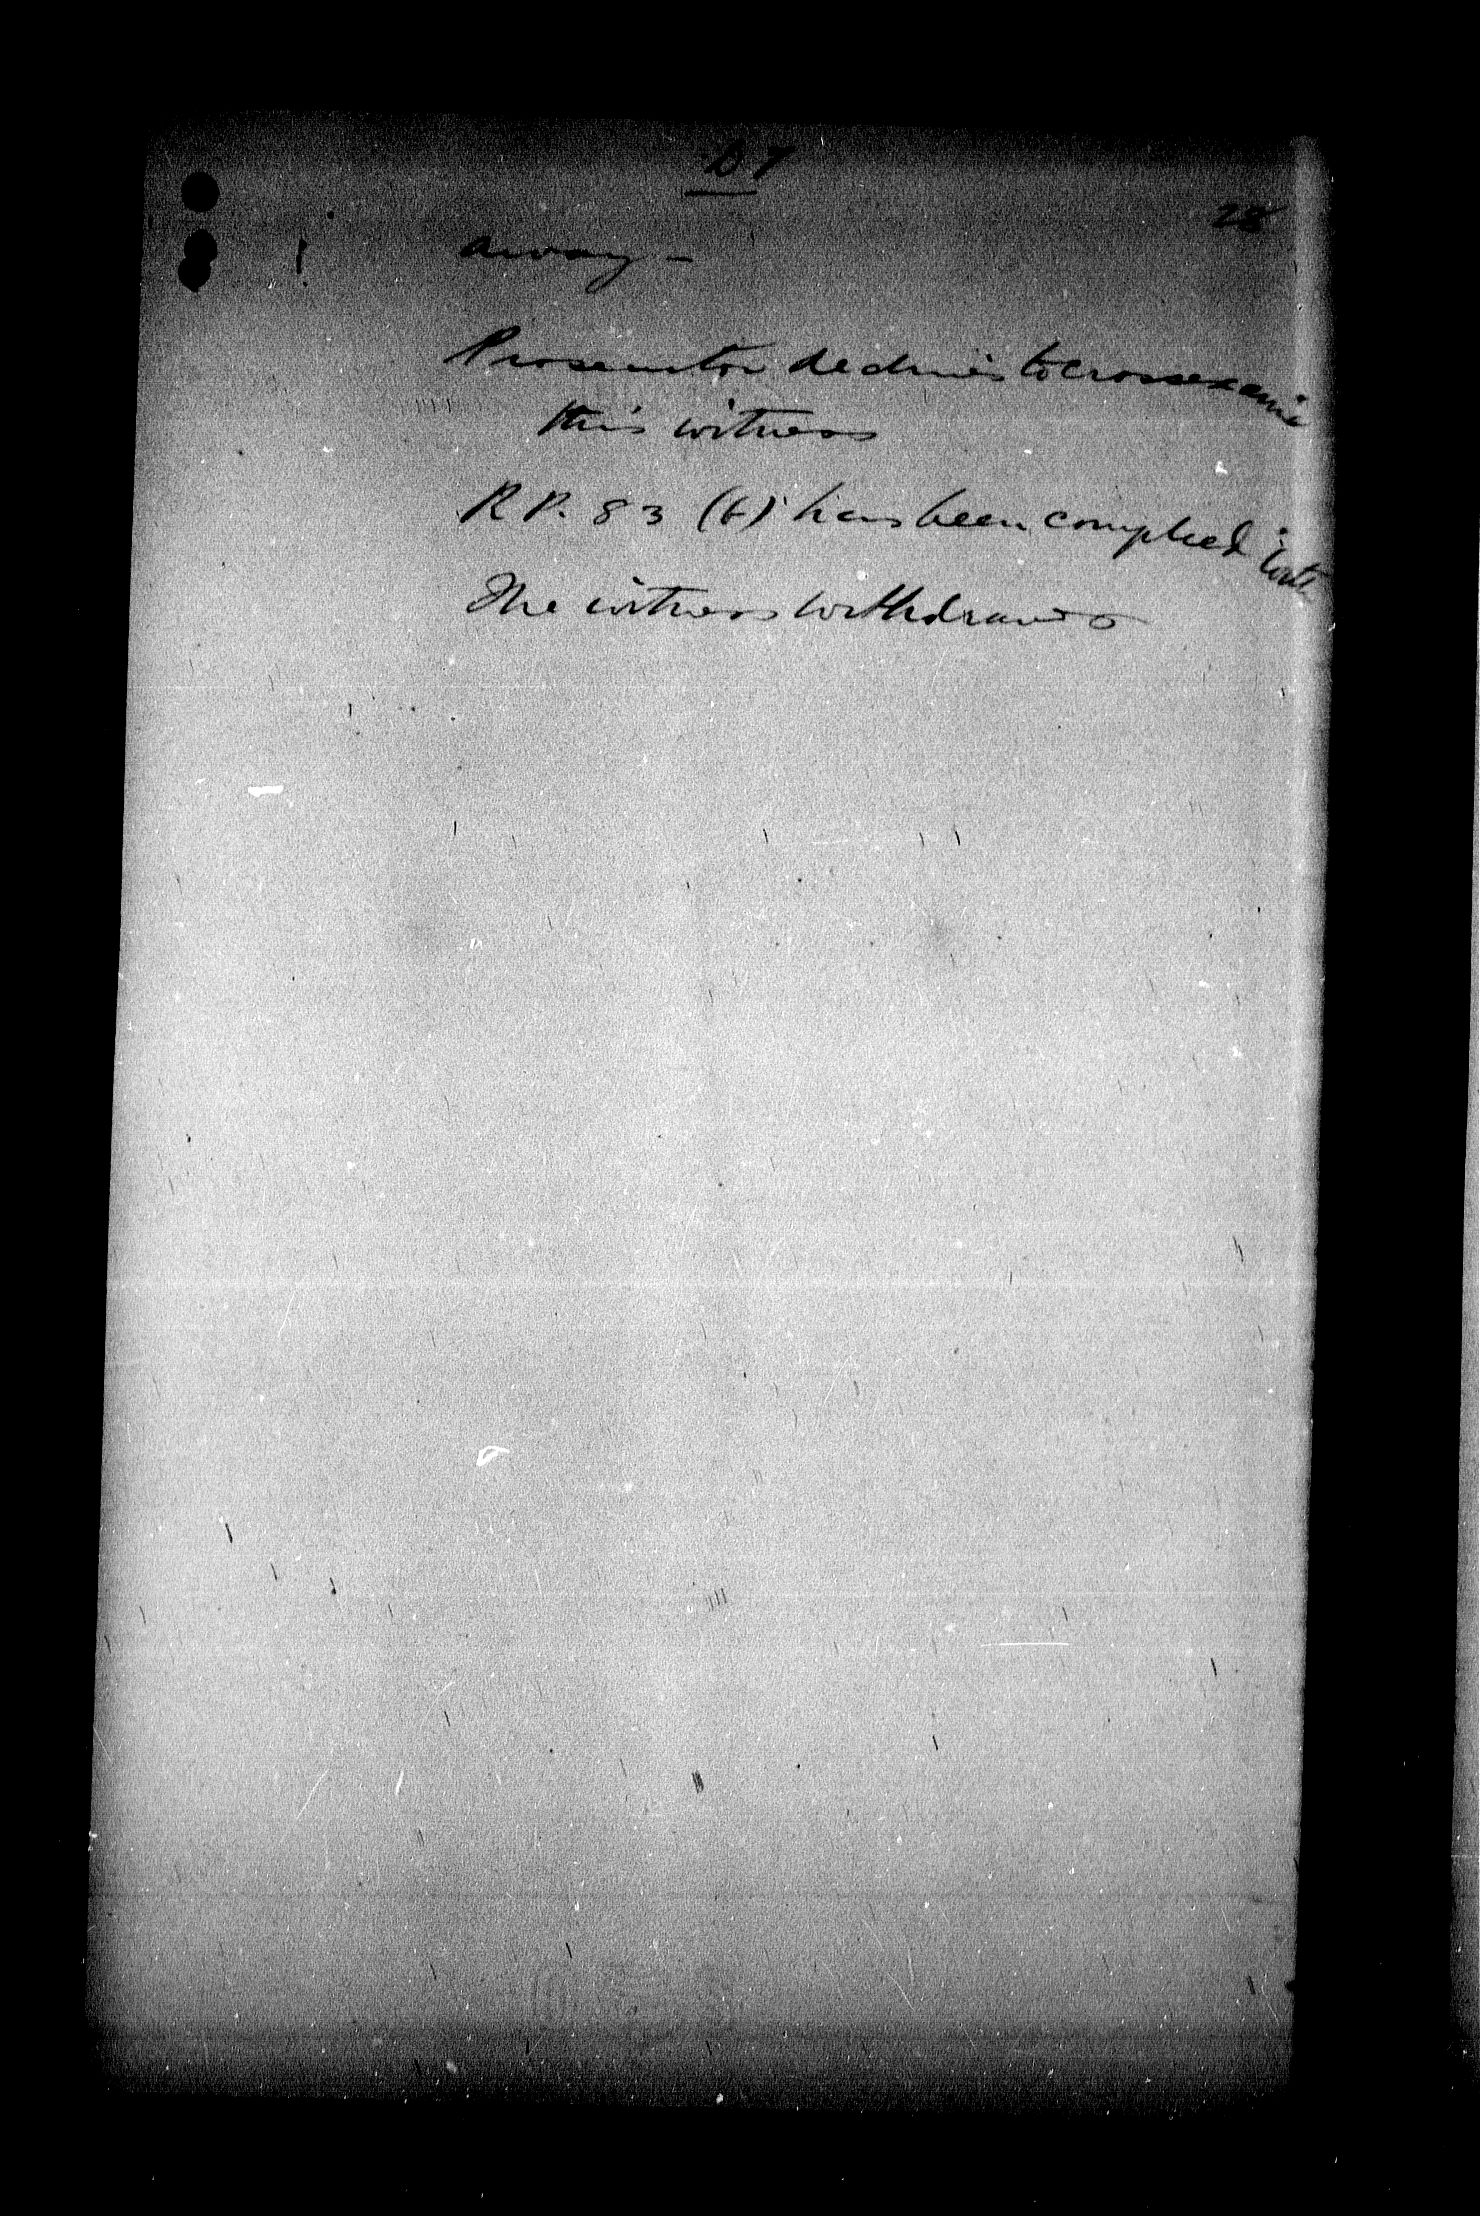 D 7
28
away -
Prosecutor declines to crossexamine
this witness
R P. 83 (b) has been complied with
The witness withdraws